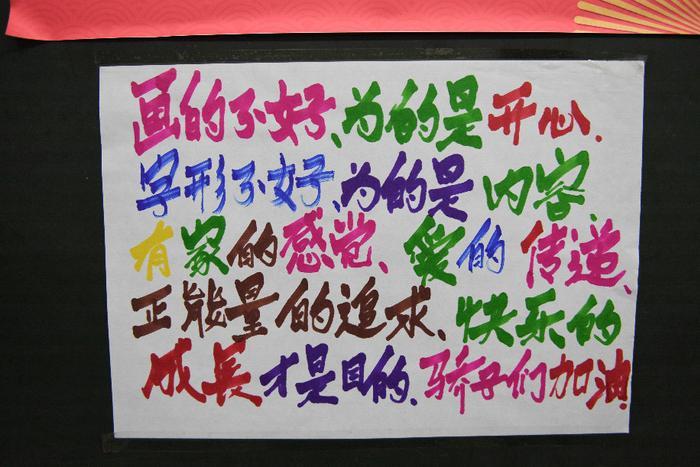 画的不好、为的是开心.
字形不好、为的是内容.
有家的感觉、爱的传道、
正能量的追求、快乐的
成長才是目的.骄子们加油!